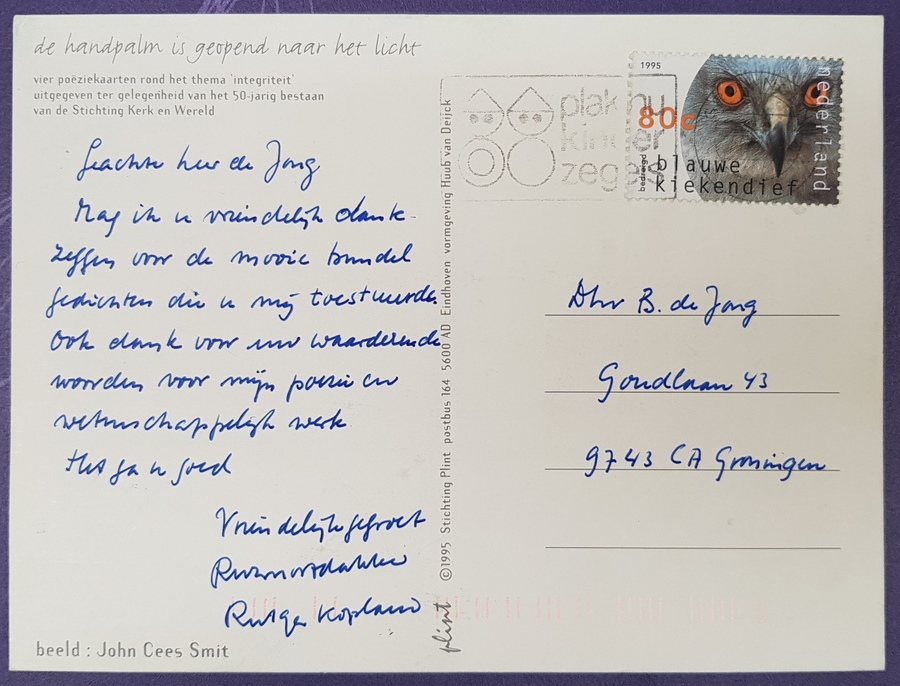 de handpalm is geopend naar het licht
vier poëziekaarten rond het thema 'integriteit'
uitgegeven ter gelegenheid van het 50-jarig bestaan
van de Stichting Kerk en Wereld
Geachte heer de Jong
Mag ik u vriendelijk dank-
zeggen voor de mooie bundel
gedichten die u mij toestuurde.
Ook dank voor uw waarderende
woorden voor mijn poëzie en
wetenschappelijk werk
Het ga u goed
Vriendelijke gegroet
Rutger Kopland
beeld : John Cees Smit
©1995 Stichting Plint postbus 164 5600 AD Eindhoven vormgeving Huub van Deijck
plint
plak nu
kinder
zegels
1995
80c
nederland
bedreigd
blauwe
kiekendief
Dhr B. de Jong
Goudlaan 43
9743 CA Groningen